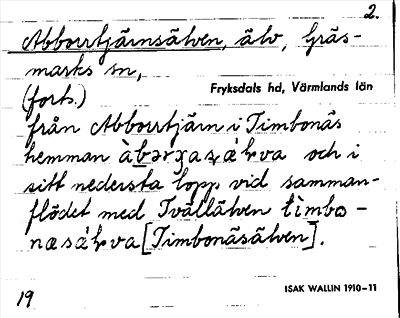 2.
Abborrtjärnsälven, älv, Gräs-
marks sn,
Fryksdals hd, Värmlands län
(forts.)
från Abborrtjärn i Timbonäs
hemman och i
sitt nedersta lopp vid samman-
flödet med Tvällälven timbo-
[Timbonäsälven].
19
ISAK WALLIN 1910-11